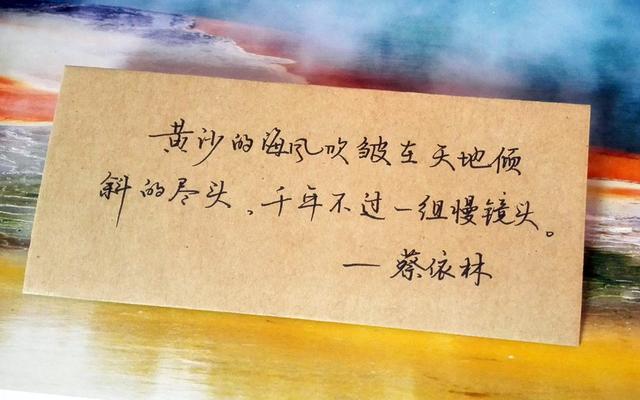 黄沙的海风吹皱在天地倾
斜的尽头、千年不过一组慢镜头。
—蔡依林